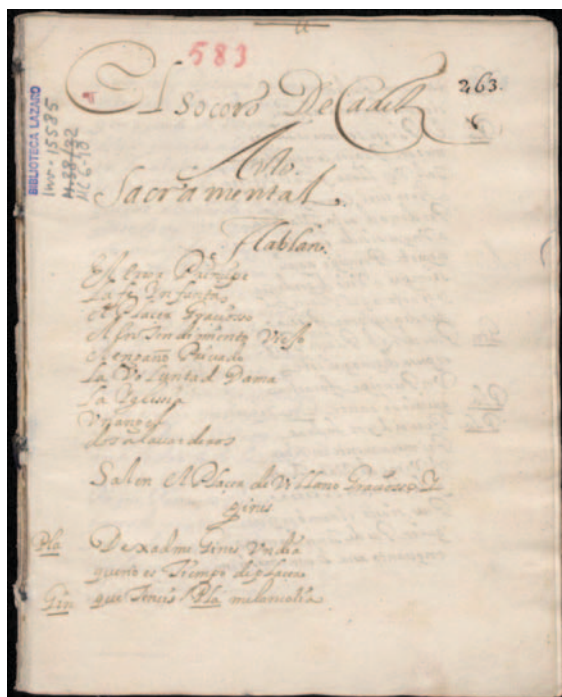 583
263.
BIBLIOTECA LAZARO
Inv. - 15585
M 6-10
El Socoro De Cadiz
Auto
Sacramental.
Hablan.
El Error Principe
La fe Infanta
El Placer Gracioso
El Entendimiento Viejo
El engaño Privado
La Voluntad Dama
La Yglesia
Vn angel
dos alavarderos
Salen el Plaçer de Villano Graçiosso Y
gines
Pla Dexadme Gines Vn dia
que no es Tiempo de plaçer
Gin que Teneis Pla melancolia